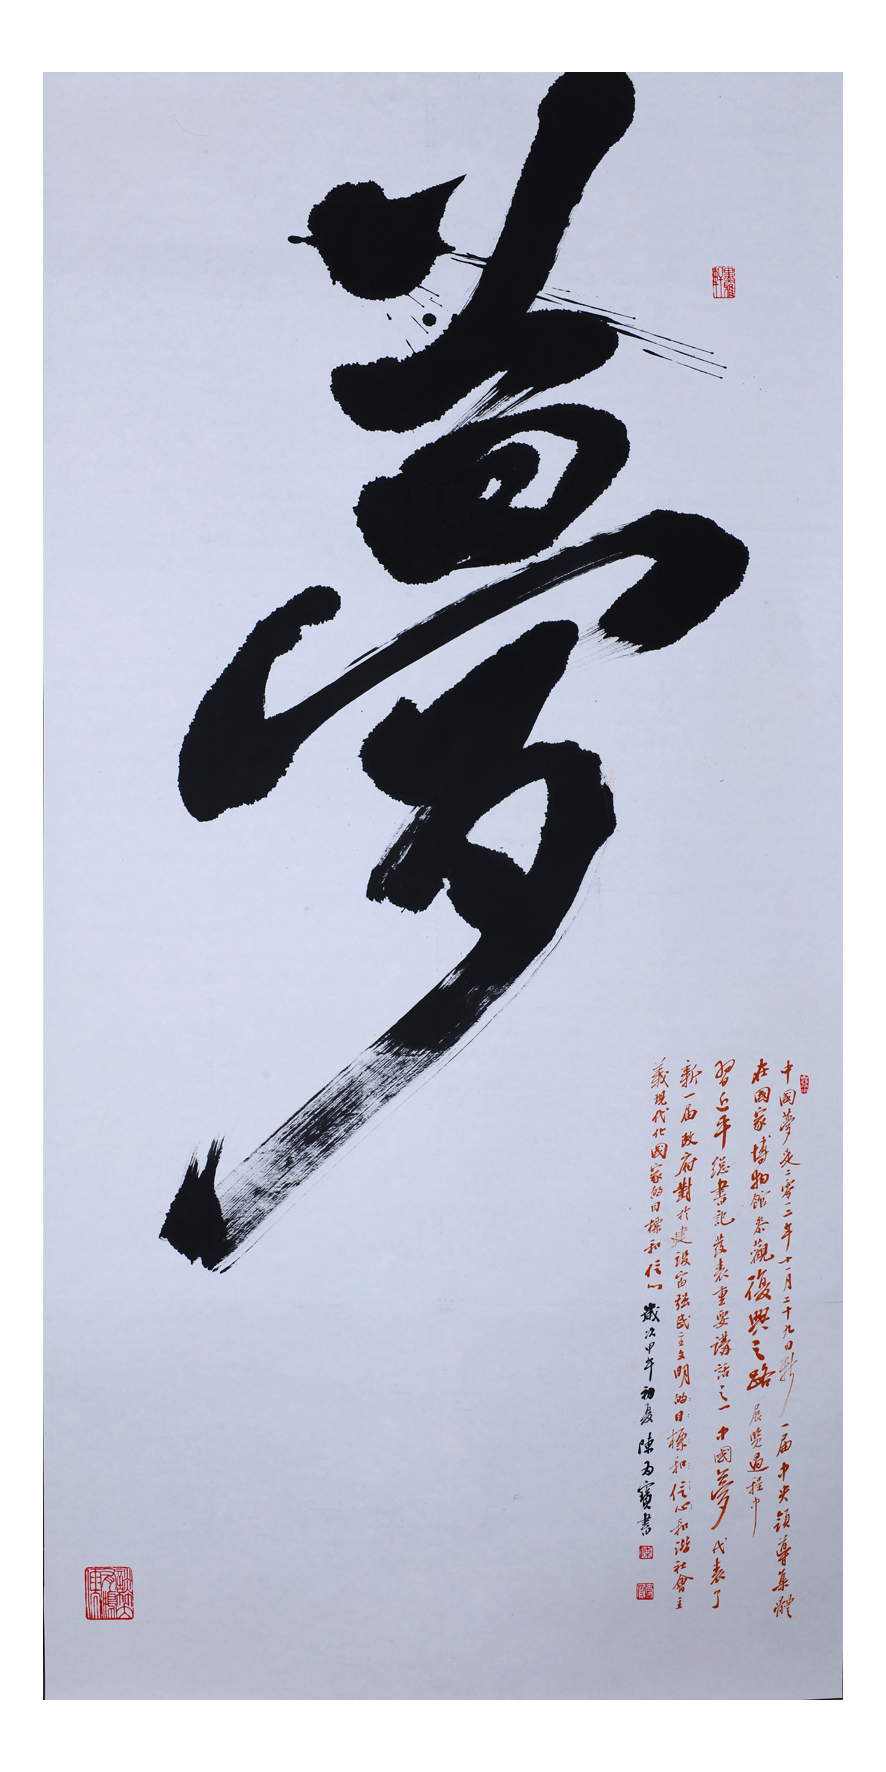 夢
中國夢是二零一二年十一月二十九日新一届中央領導集體
在國家博物館参觀復興之路展览過程中
習近平總書記發表重要講話之一中國夢代表了
新一届政府對於建設富强民主文明的目標和信心和谐社會主
義現代化國家的目標和信心
歲次甲午初夏陳為寳書